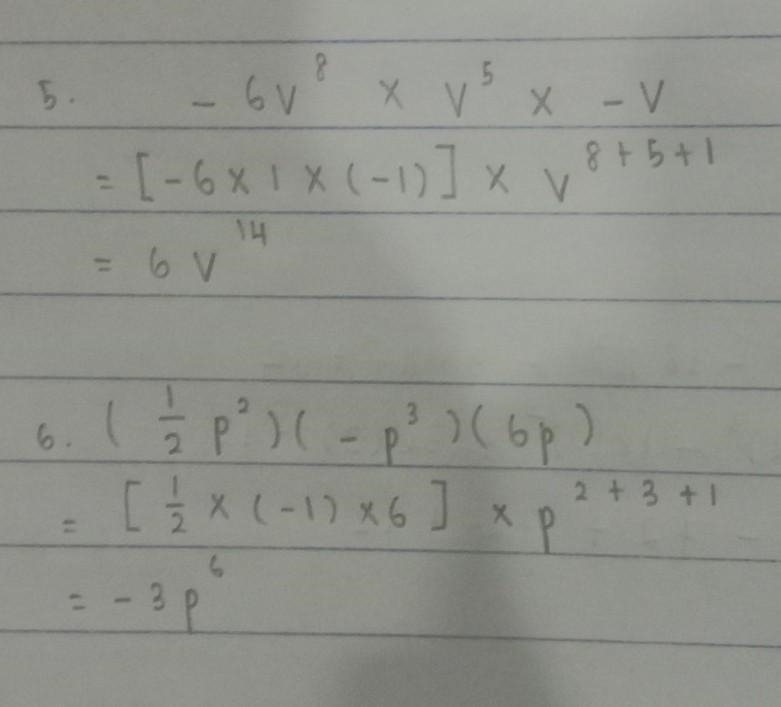 5. - 6v⁸ × v⁵ × - v
= [-6 × 1 × (-1)] × v⁸⁺⁵⁺¹
= 6v¹⁴
6. (½ p²)(-p³)(6p)
= [½ × (-1) × 6] × p²⁺³⁺¹
= -3p⁶